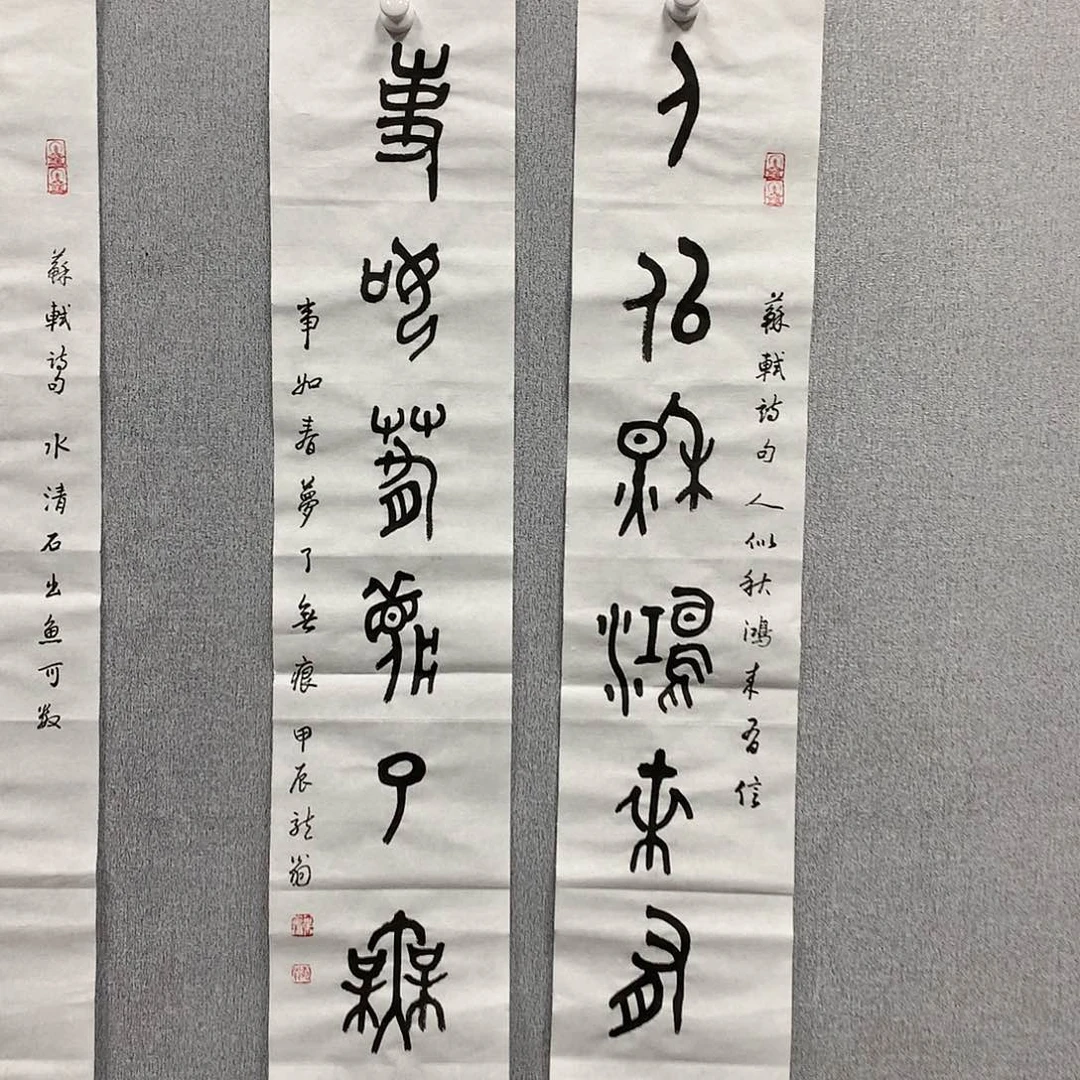 人似秋鴻來有
蘇軾詩句 人似秋鴻來有信
事如春夢了無
事如春夢了無痕 甲辰龍翁
蘇軾詩句 水清石出魚可數